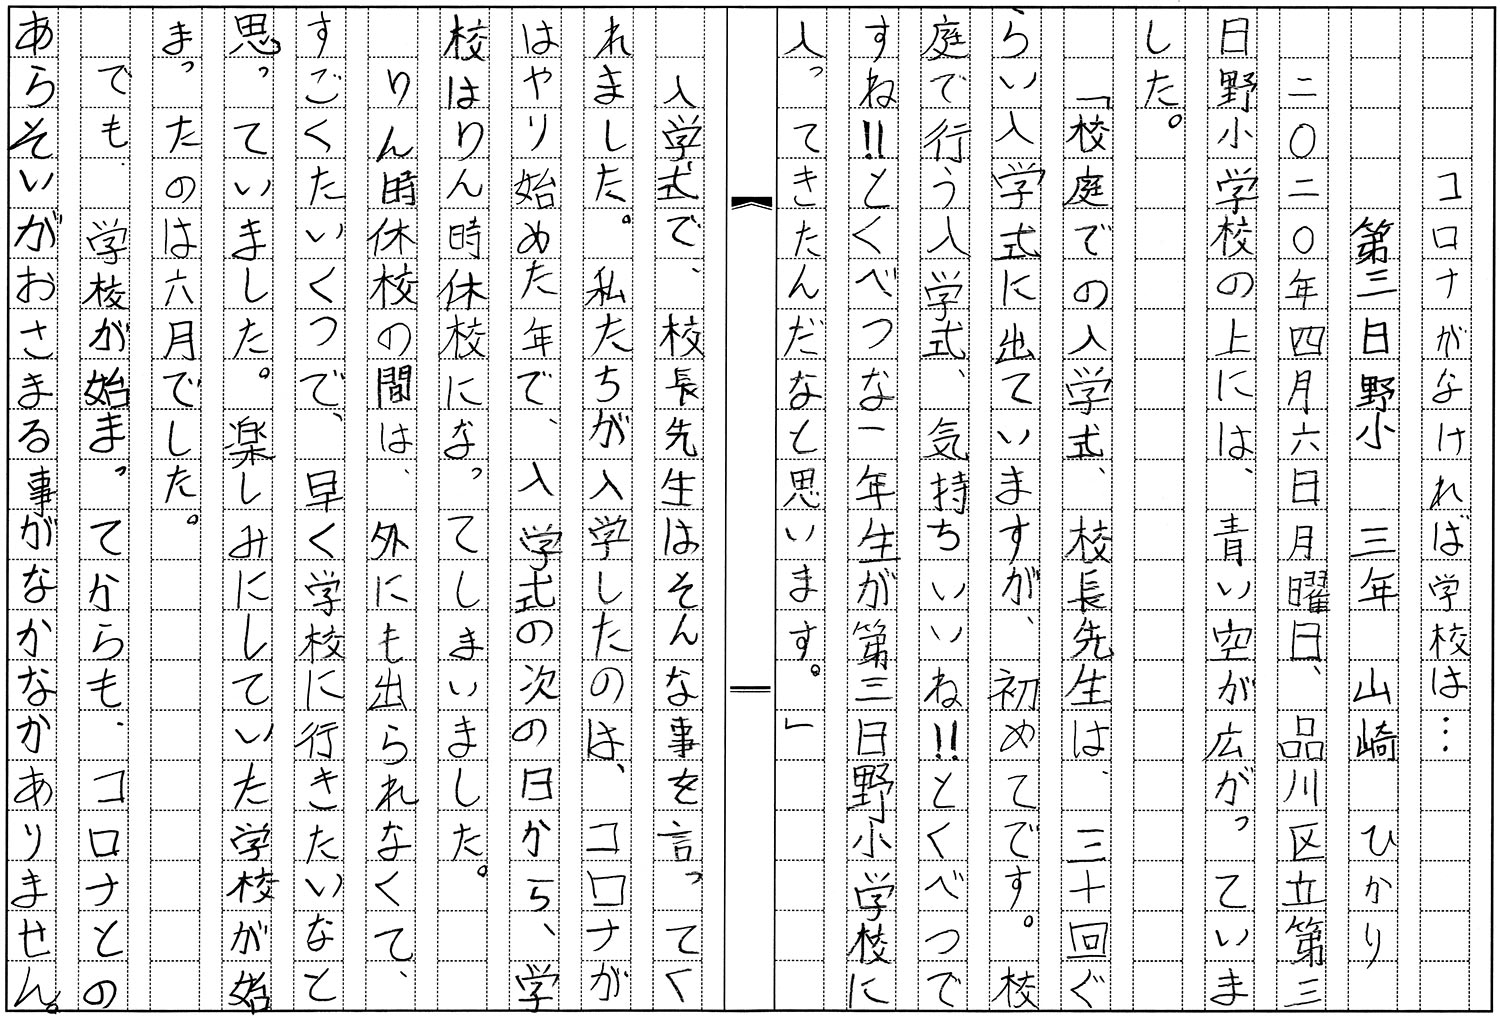 コロナがなければ学校は…
第三日野小　三年　山崎　ひかり
二〇二〇年四月六日月曜日、品川区立第三
日野小学校の上には、青い空が広がっていま
した。
「校庭での入学式、校長先生は、三十回ぐ
らい入学式に出ていますが、初めてです。校
庭で行う入学式、気持ちいいね!!とくべつで
すね!!とくべつな一年生が第三日野小学校に
入ってきたんだなと思います。」
入学式で、校長先生はそんな事を言ってく
れました。私たちが入学したのは、コロナが
はやり始めた年で、入学式の次の日から、学
校はりん時休校になってしまいました。
りん時休校の間は、外にも出られなくて、
すごくたいくつで、早く学校に行きたいなと
思っていました。楽しみにしていた学校が始
まったのは六月でした。
でも、学校が始まってからも、コロナとの
あらそいがおさまる事がなかなかありません。